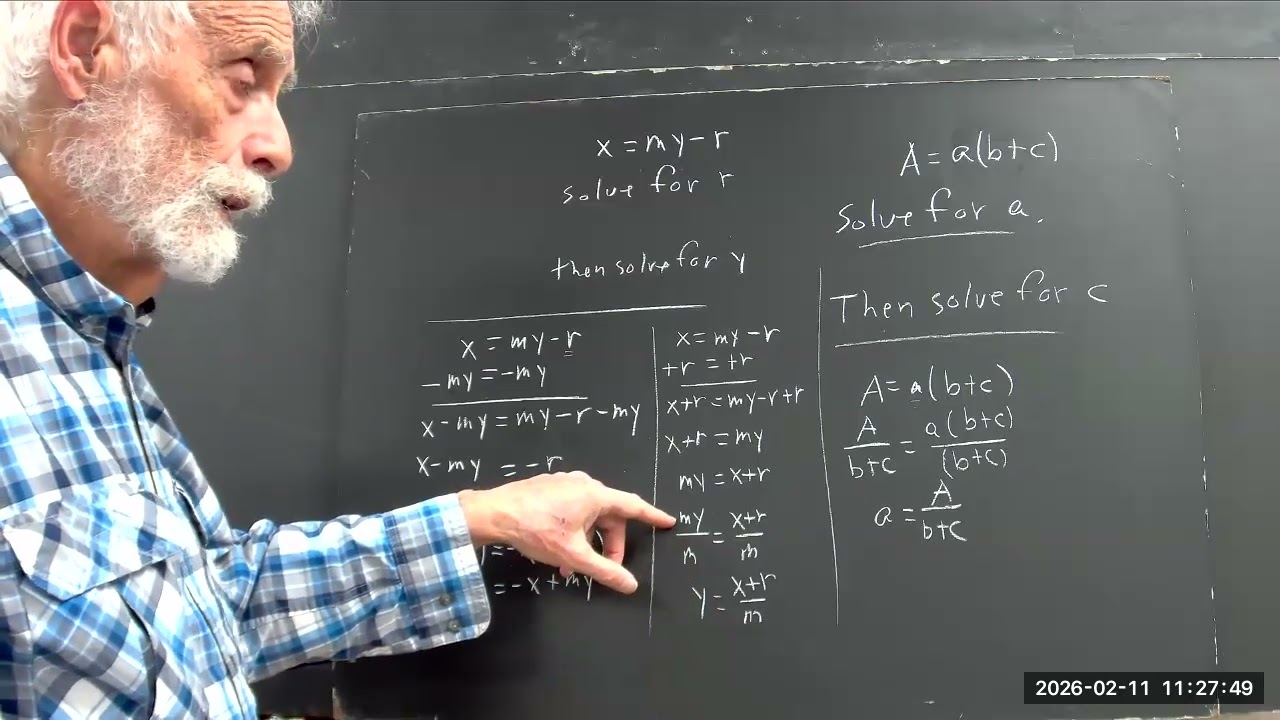 x = my - r
solve for r
then solve for y
x = my - r
-my = -my
x - my = my - r - my
x - my = -r
= -x + my
x = my - r
+r = +r
x+r = my - r + r
x+r = my
my = x+r
my/m = x+r/m
y = x+r/m
A = a(b+c)
Solve for a.
Then solve for c
A = a(b+c)
A/b+c = a(b+c)/(b+c)
a = A/b+c
2026-02-11 11:27:49